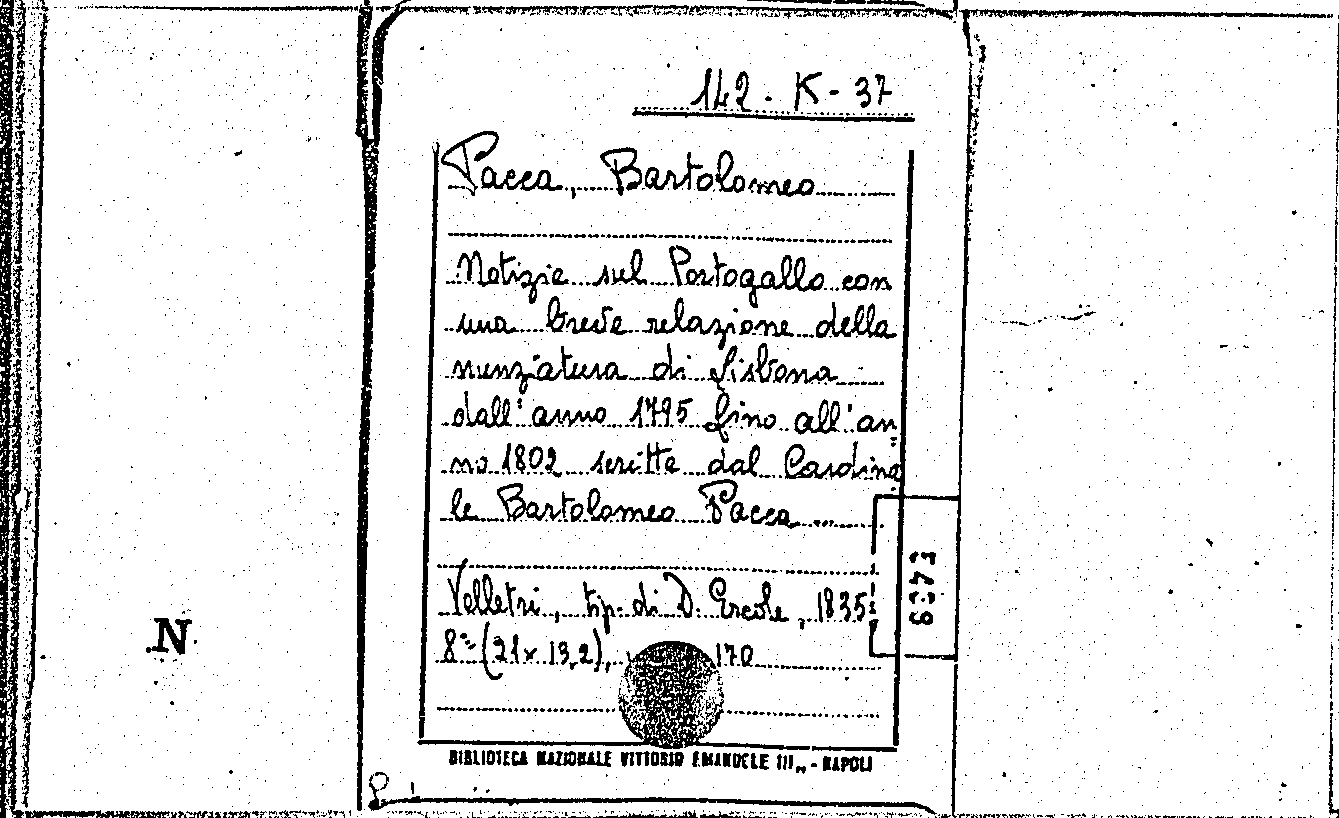 142 - K - 37
Pacca, Bartolomeo
Notizie sul Portogallo con
una breve relazione della
nunziatura di Lisbona
dall'anno 1795 fino all'an
no 1802 scritte dal Cardina
le Bartolomeo Pacca ...
Velletri, tip. di D. Ercole, 1835
8° (21 x 13,2), 170
BIBLIOTECA NAZIONALE VITTORIO EMANUELE III„ - NAPOLI
N